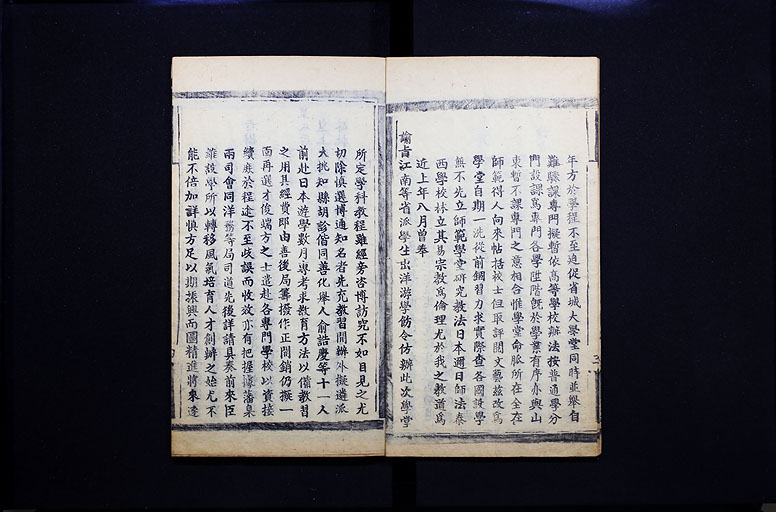 年方於藝程不至迫促省城大學堂同時並舉自
難驟課專門擬暫依高等學校辦法按普通學分
門設課為專門各學陞階既於學業有序亦與山
東暫不課專門之意相合惟學堂命脈所在全在
師範得人向來帖括校士但取評閱文藝茲改為
學堂自期一洗從前錮習力求實際查各國設學
無不先立師範學堂研究教法日本週日師法泰
西學校林立其易宗教為倫理尤於我之教道為
近上年八月曾奉
諭旨江南等省派學生出洋游學飭令仿辦此次學堂
所定學科教程雖經旁咨博訪究不如目見之尤
切除慎選博通知名者先充教習開辦外擬遴派
大挑知縣胡診偕同善化舉人俞誥慶等十一人
前赴日本游學數月專考求教育方法以備教習
之用其經費即由善後局籌撥作正開銷仍擬一
面再選才俊端方之士遣赴各專門學校以資接
續庶於程途不至歧誤而收效亦有把握據藩臬
兩司會同洋務等局司道先後詳請具奏前來臣
維設學所以轉移風氣培育人才創辦之始尤不
能不倍加詳慎方足以期振興而圖精進將來逐